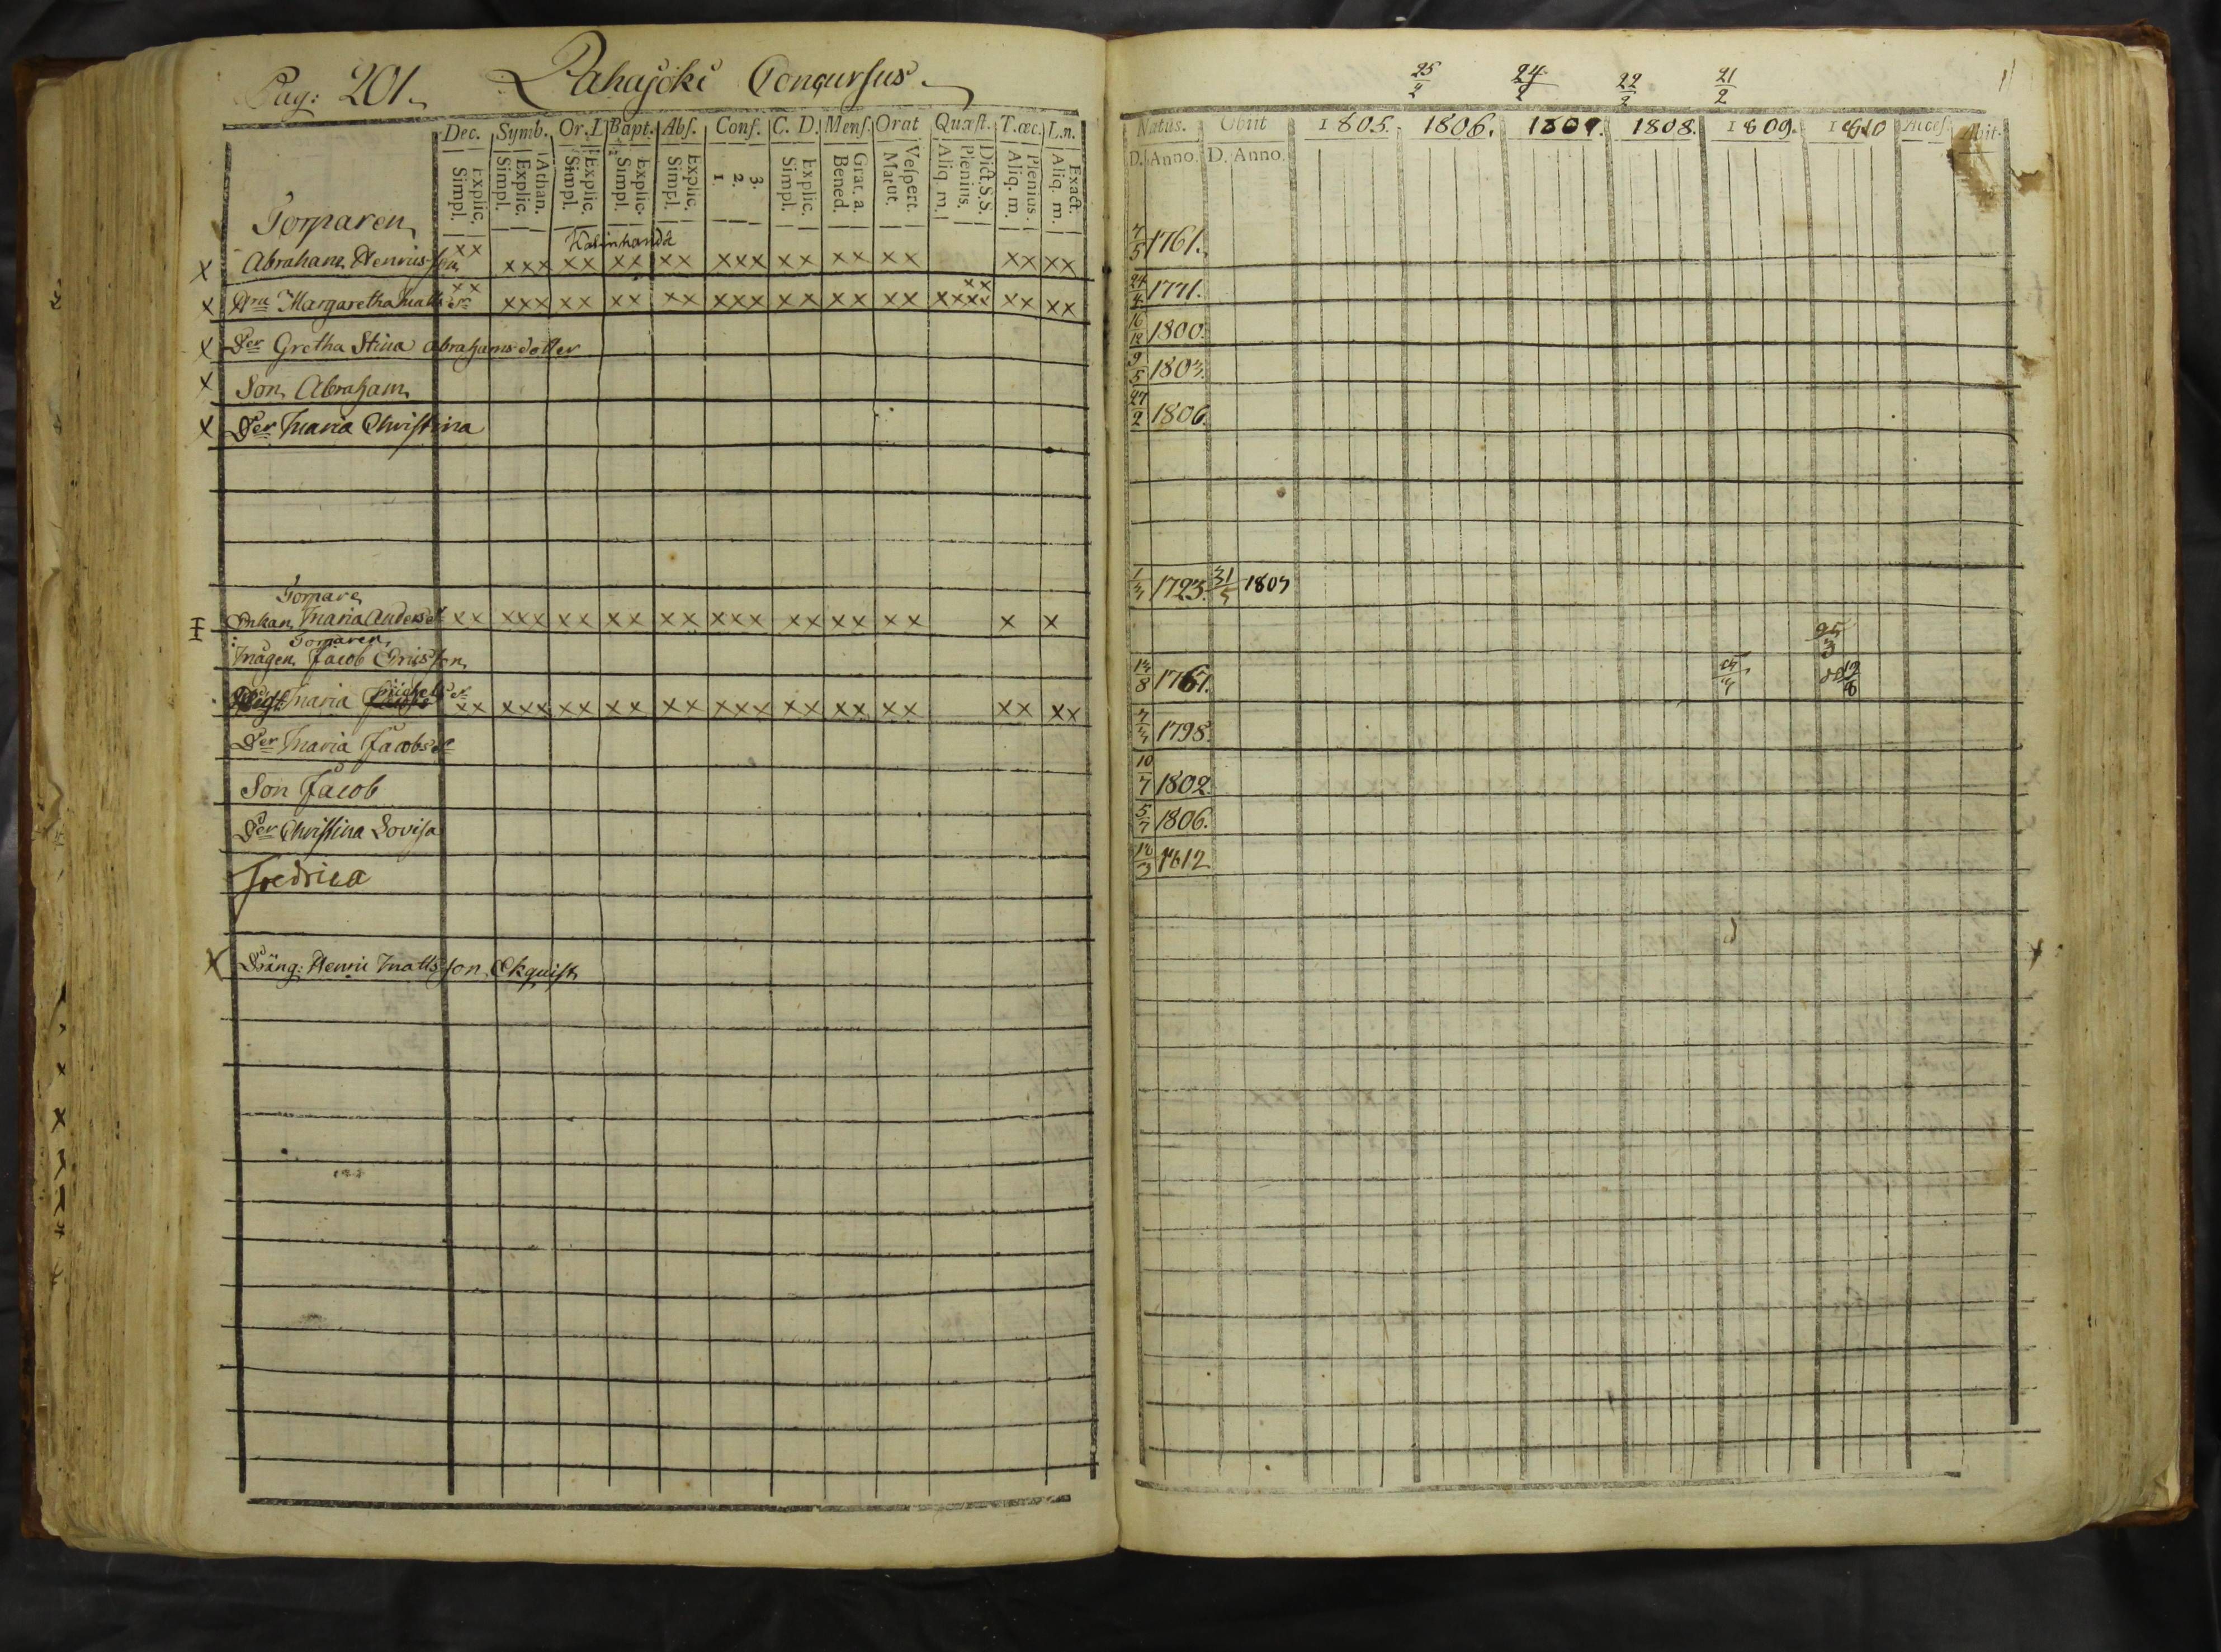 Pag: 201. Pahajoki Concursus
Dec. Symb. Or. D. Bapt. Abs. Conf. C. D. Mens. Orat Quæst. T. œc. L. n.
Explic. Simpl. Athan. Explic. Simpl. Explic. Simpl. Explic. Simpl. Explic. Simpl. 3. 2. 1. Explic. Simpl. Grat. a. Bened. Vespert. Matut. Dict. S. S. Plenius. Aliq. m. Plenius. Aliq. m. Exact. Aliq. m.
Torparen
Abraham Henrisson xx xxx xx xx xx xxx xx xx xx xx xx
Margaretha Matts dr xx xxx xx xx xx xxx xx xx xx xxxx xx xx xx
Der Gretha Stina Abrahamsdotter
Son Abraham
Der Maria Christina
Torpare
Enkan Maria Andersdr xx xxx xx xx xx xxx xx xx xx x x
Torparen
Mågen Jacob Ersson
Maria Michelsdr xx xxx xx xx xx xxx xx xx xx xx xx
Der Maria Jacobsdr
Son Jacob
Der Christina Lovisa
Fredrica
Dräng: Henric Mattsson Ekquist
25/2 24/2 22/2 21/2
Natus. Obiit 1805. 1806. 1807. 1808. 1809. 1810 Acces. Abit.
D. Anno. D. Anno.
7/5 1761.
24/4 1771.
16/12 1800.
9/5 1803.
27/2 1806.
1723. 1807
25/3
13/8 1767.
1798.
10/7 1802
5/7 1806.
1812